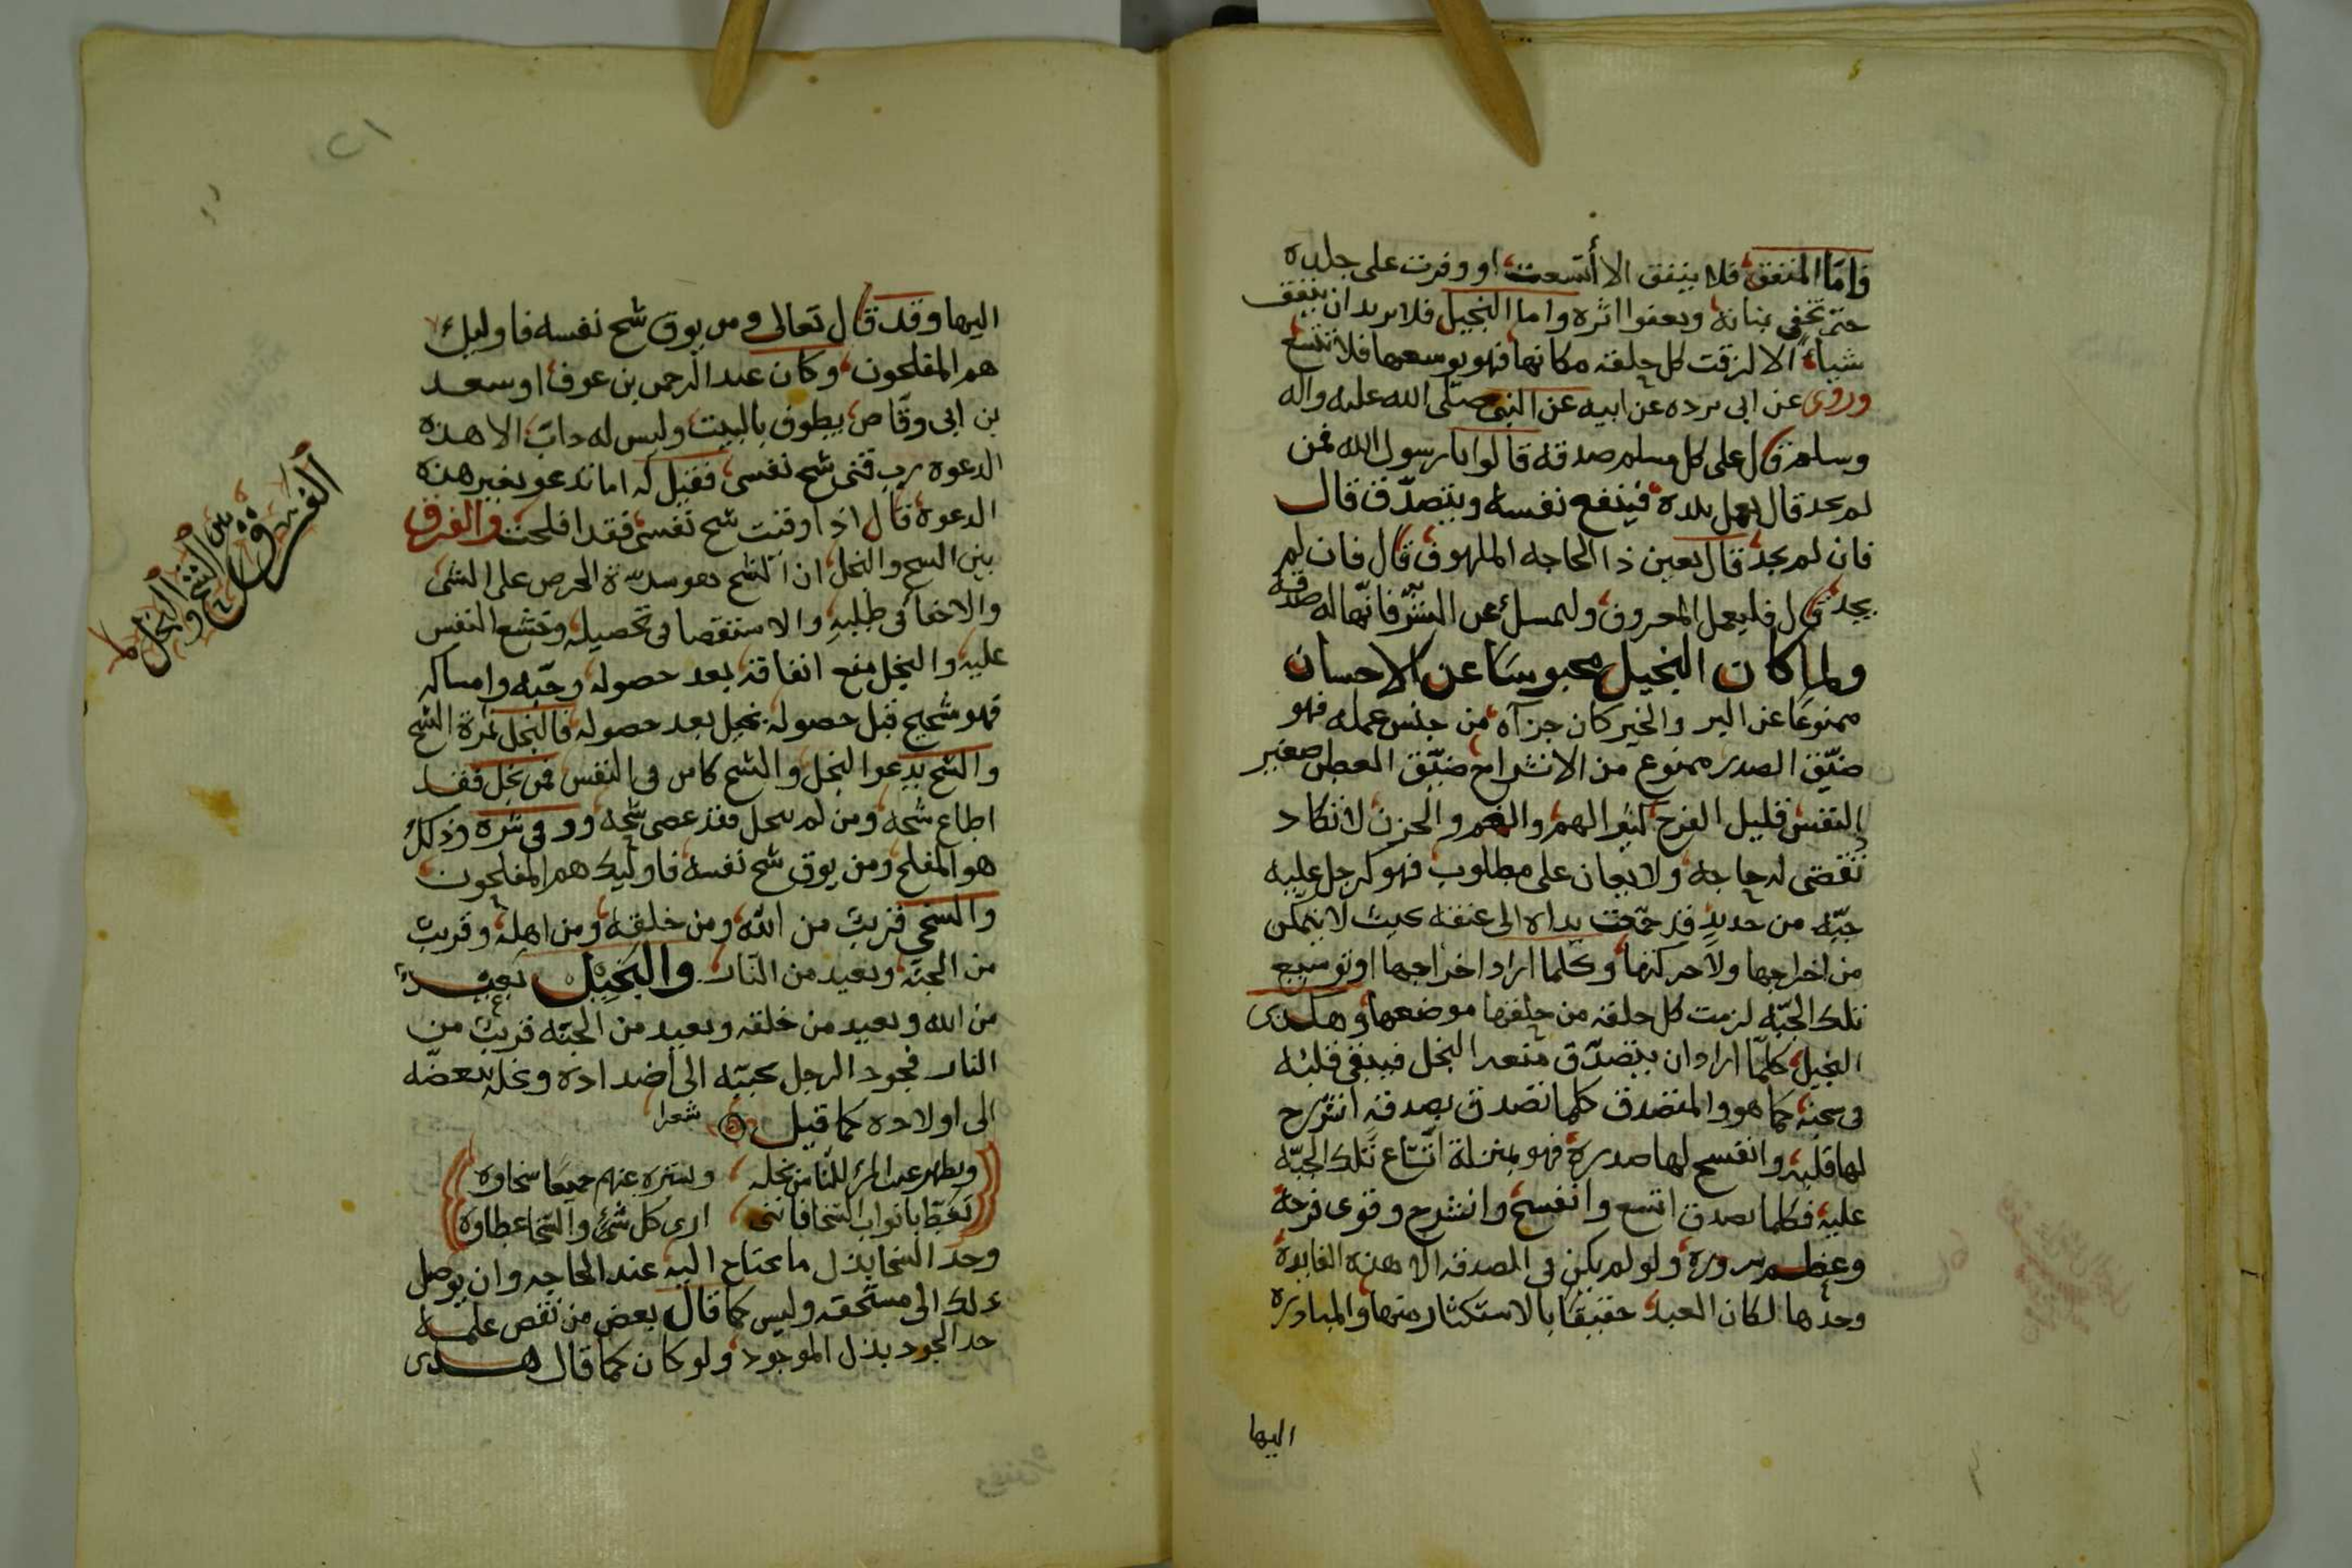 فامّا المنفق فلا ينفق الا أتّسعت او وفرت على جلده
حتى تخفى بنانه ويعفوا اثره واما البخيل فلا يريد ان ينفق
شياء الا لزقت كل حلقه مكانها فهو يوسعها فلا تتسع
وروى عن ابى برده عن ابيه عن النبي صلّى الله عليه واله
وسلم قال على كل مسلم صدقه قالوا يا رسول الله فمن
لم يجد قال يعمل بيده فينفع نفسه ويتصدّق قال
فان لم يجد قال يعين ذا الحاجه الملهوف قال فان لم
يجد قال فليعمل المعروف وليمسك عن الشرّ فانّها له صدقه
ولما كان البخيل محبوسًا عن الاحسان
ممنوعًا عن البر والخير كان جزآه من جنس عمله فهو
ضيّق الصدر ممنوع من الانشراح ضيّق العطن صغير
النفس قليل الفرح كثير الهم والغم والحزن لا تكاد
تقضى له حاجه ولا يعان على مطلوب فهو كرجل عليه
جبّه من حديد قد جمعت يداه الى عنقه بحيث لا يتمكن
من اخراجها ولا حركتها وكلما اراد اخراجها او توسيع
تلك الجبّه لزمت كل حلقه من حلقها موضعها وهكذى
البخيل كلمّا اراد ان يتصدّق منعه البخل فيبقى قلبه
فى سجنه كما هو والمتصدق كلما تصدق بصدقه انشرح
لها قلبه وانفسح لها صدره فهو بمنزلة اتّساع تلك الجبّه
عليه فكلما تصدق اتسع وانفسح وانشرح وقوى فرحه
وعظم سروره ولو لم يكن فى الصدقه الا هذه الفايده
وحدها لكان العبد حقيقًا بالاستكثار منها والمبادره
اليها
٢١
اليها وقد قال تعالى ومن يوق شح نفسه فاوليك
هم المفلحون وكان عبد الرحمن بن عوف او سعد
بن ابى وقّاص يطوف بالبيت وليس له داب الا هذه
الدعوه رب قنى شح نفسى فقيل له اما تدعو بغير هذه
الدعوه قال اذا وقيت شح نفسى فقد افلحت والفرق
بين الشح والبخل ان الشح هو شدّة الحرص على الشى
والاحفا فى طلبه والاستقصا فى تحصيله وجشع النفس
عليه والبخل منع انفاقه بعد حصوله وحبّه وامساكه
فهو شحيح قبل حصوله بخيل بعد حصوله فالبخل ثمرة الشح
والشح يدعوا البخل والشح كامن فى النفس فمن بخل فقد
اطاع شحه ومن لم يبخل فقد عصى شحه ووقى شره وذلك
هو المفلح ومن يوق شح نفسه فاوليك هم المفلحون
والسخي قريب من الله ومن خلقه ومن اهله وقريب
من الجنّه وبعيد من النّار والبخيل بعيد
من الله وبعيد من خلقه وبعيد من الجنّه قريب من
النار فجود الرجل يحببّه الى أضداده وبخله يبغضّه
الى اولاده كما قيل شعرا
ويظهر عيب المرء للنّاس بخله ويستره عنهم جميعًا سخاوه
تغطّا باثواب السّخا فاننى ارى كل شئ والسّخا غطاوه
وحد السّخا بذل ما يحتاج اليه عند الحاجه وان يوصل
ذلك الى مستحقه وليس كما قال بعض من نقص علمه
حد الجود بذل الموجود ولو كان كما قال هكذى
الفرق بين الشح والبخل